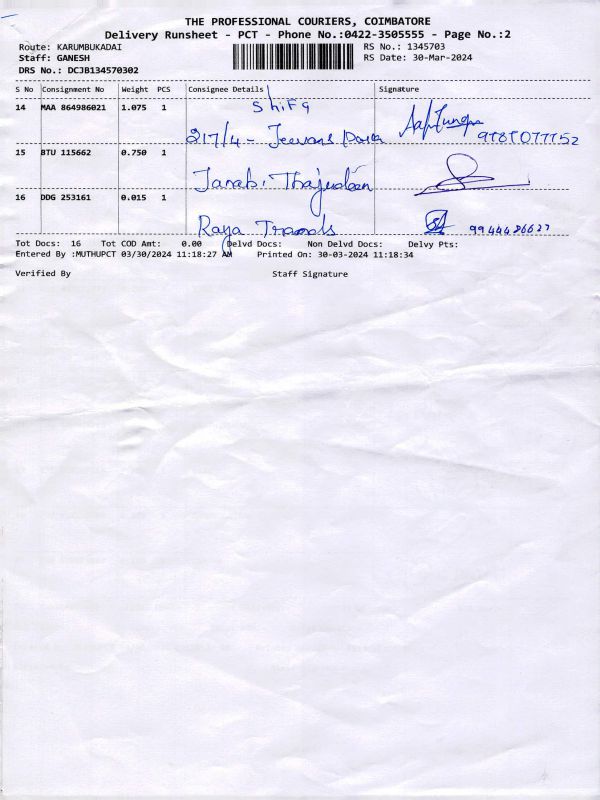 THE PROFESSIONAL COURIERS, COIMBATORE
Delivery Runsheet - PCT - Phone No.:0422-3505555 - Page No.:2
Route: KARUMBUKADAI RS No.: 1345703
Staff: GANESH RS Date: 30-Mar-2024
DRS No.: DCJB134570302
S No Consignment No Weight PCS Consignee Details Signature
14 MAA 864986021 1.075 1 Shifa
217/4 -
15 BTU 115662 0.750 1
Janabi Thajudeen
16 DDG 253161 0.015 1
Raja
Tot Docs: 16 Tot COD Amt: 0.00 Delvd Docs: Non Delvd Docs: Delvy Pts:
Entered By :MUTHUPCT 03/30/2024 11:18:27 AM Printed On: 30-03-2024 11:18:34
Verified By Staff Signature